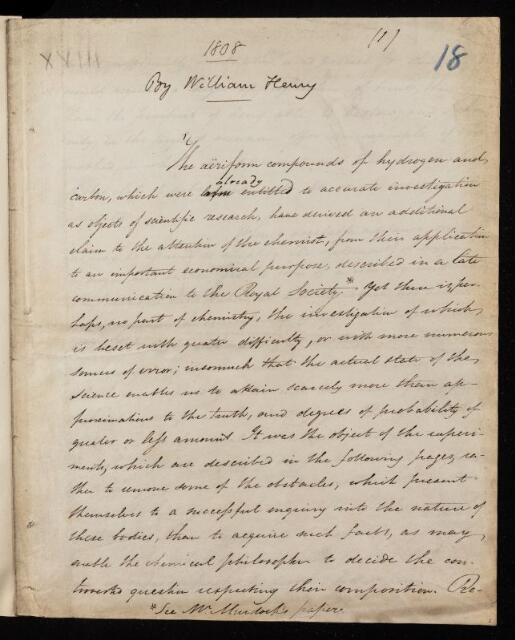 1808
(1)
18
XXIII
By William Henry
The aëriform compounds of hydrogen and
carbon, which were already entitled to accurate investigation
as objects of scientific research, have derived an additional
claim to the attention of the chemist, from their application
to an important economical purpose, described in a late
communication to the Royal Society.* Yet there is, per-
haps, no part of chemistry, the investigation of which
is beset with greater difficulty, or with more numerous
sources of error; insomuch that the actual state of the
science enables us to attain scarcely more than ap-
proximations to the truth, and degrees of probability of
greater or less amount. It was the object of the experi-
ments, which are described in the following pages, ra-
ther to remove some of the obstacles, which present
themselves to a successful inquiry into the nature of
these bodies, than to acquire such facts, as may
enable the chemical philosopher to decide the con-
troverted question respecting their composition. Re-
*See Mr. Murdoch's paper